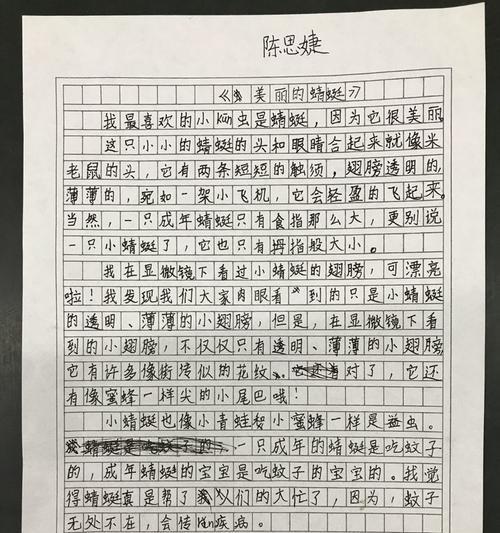 陈思婕
《美丽的蜻蜓》
我最喜欢的小kūn虫是蜻蜓，因为它很美丽
这只小小的蜻蜓的头和眼睛合起来就像米
老鼠的头，它有两条短短的触须，翅膀透明的，
薄薄的，宛如一架小飞机，它会轻盈的飞起来。
当然，一只成年蜻蜓只有食指那么大，更别说
一只小蜻蜓了，它也只有拇指般大小。
我在显微镜下看过小蜻蜓的翅膀，可漂亮
啦！我发现我们大家肉眼看到的只是小蜻蜓
的透明、薄薄的小翅膀，但是，在显微镜下看
到的小翅膀，不仅仅只有透明、薄薄的小翅膀
它有许多像砖似的花纹，对了，它还
有像蜜蜂一样尖的小尾巴哦！
小蜻蜓也像小青蛙和小蜜蜂一样是益虫。
一只成年的蜻蜓是吃蚊子
的，成年蜻蜓的宝宝是吃蚊子的宝宝的。我觉
得蜻蜓真是帮了人们的大忙了，因为，蚊子
无处不在，会传疾病。